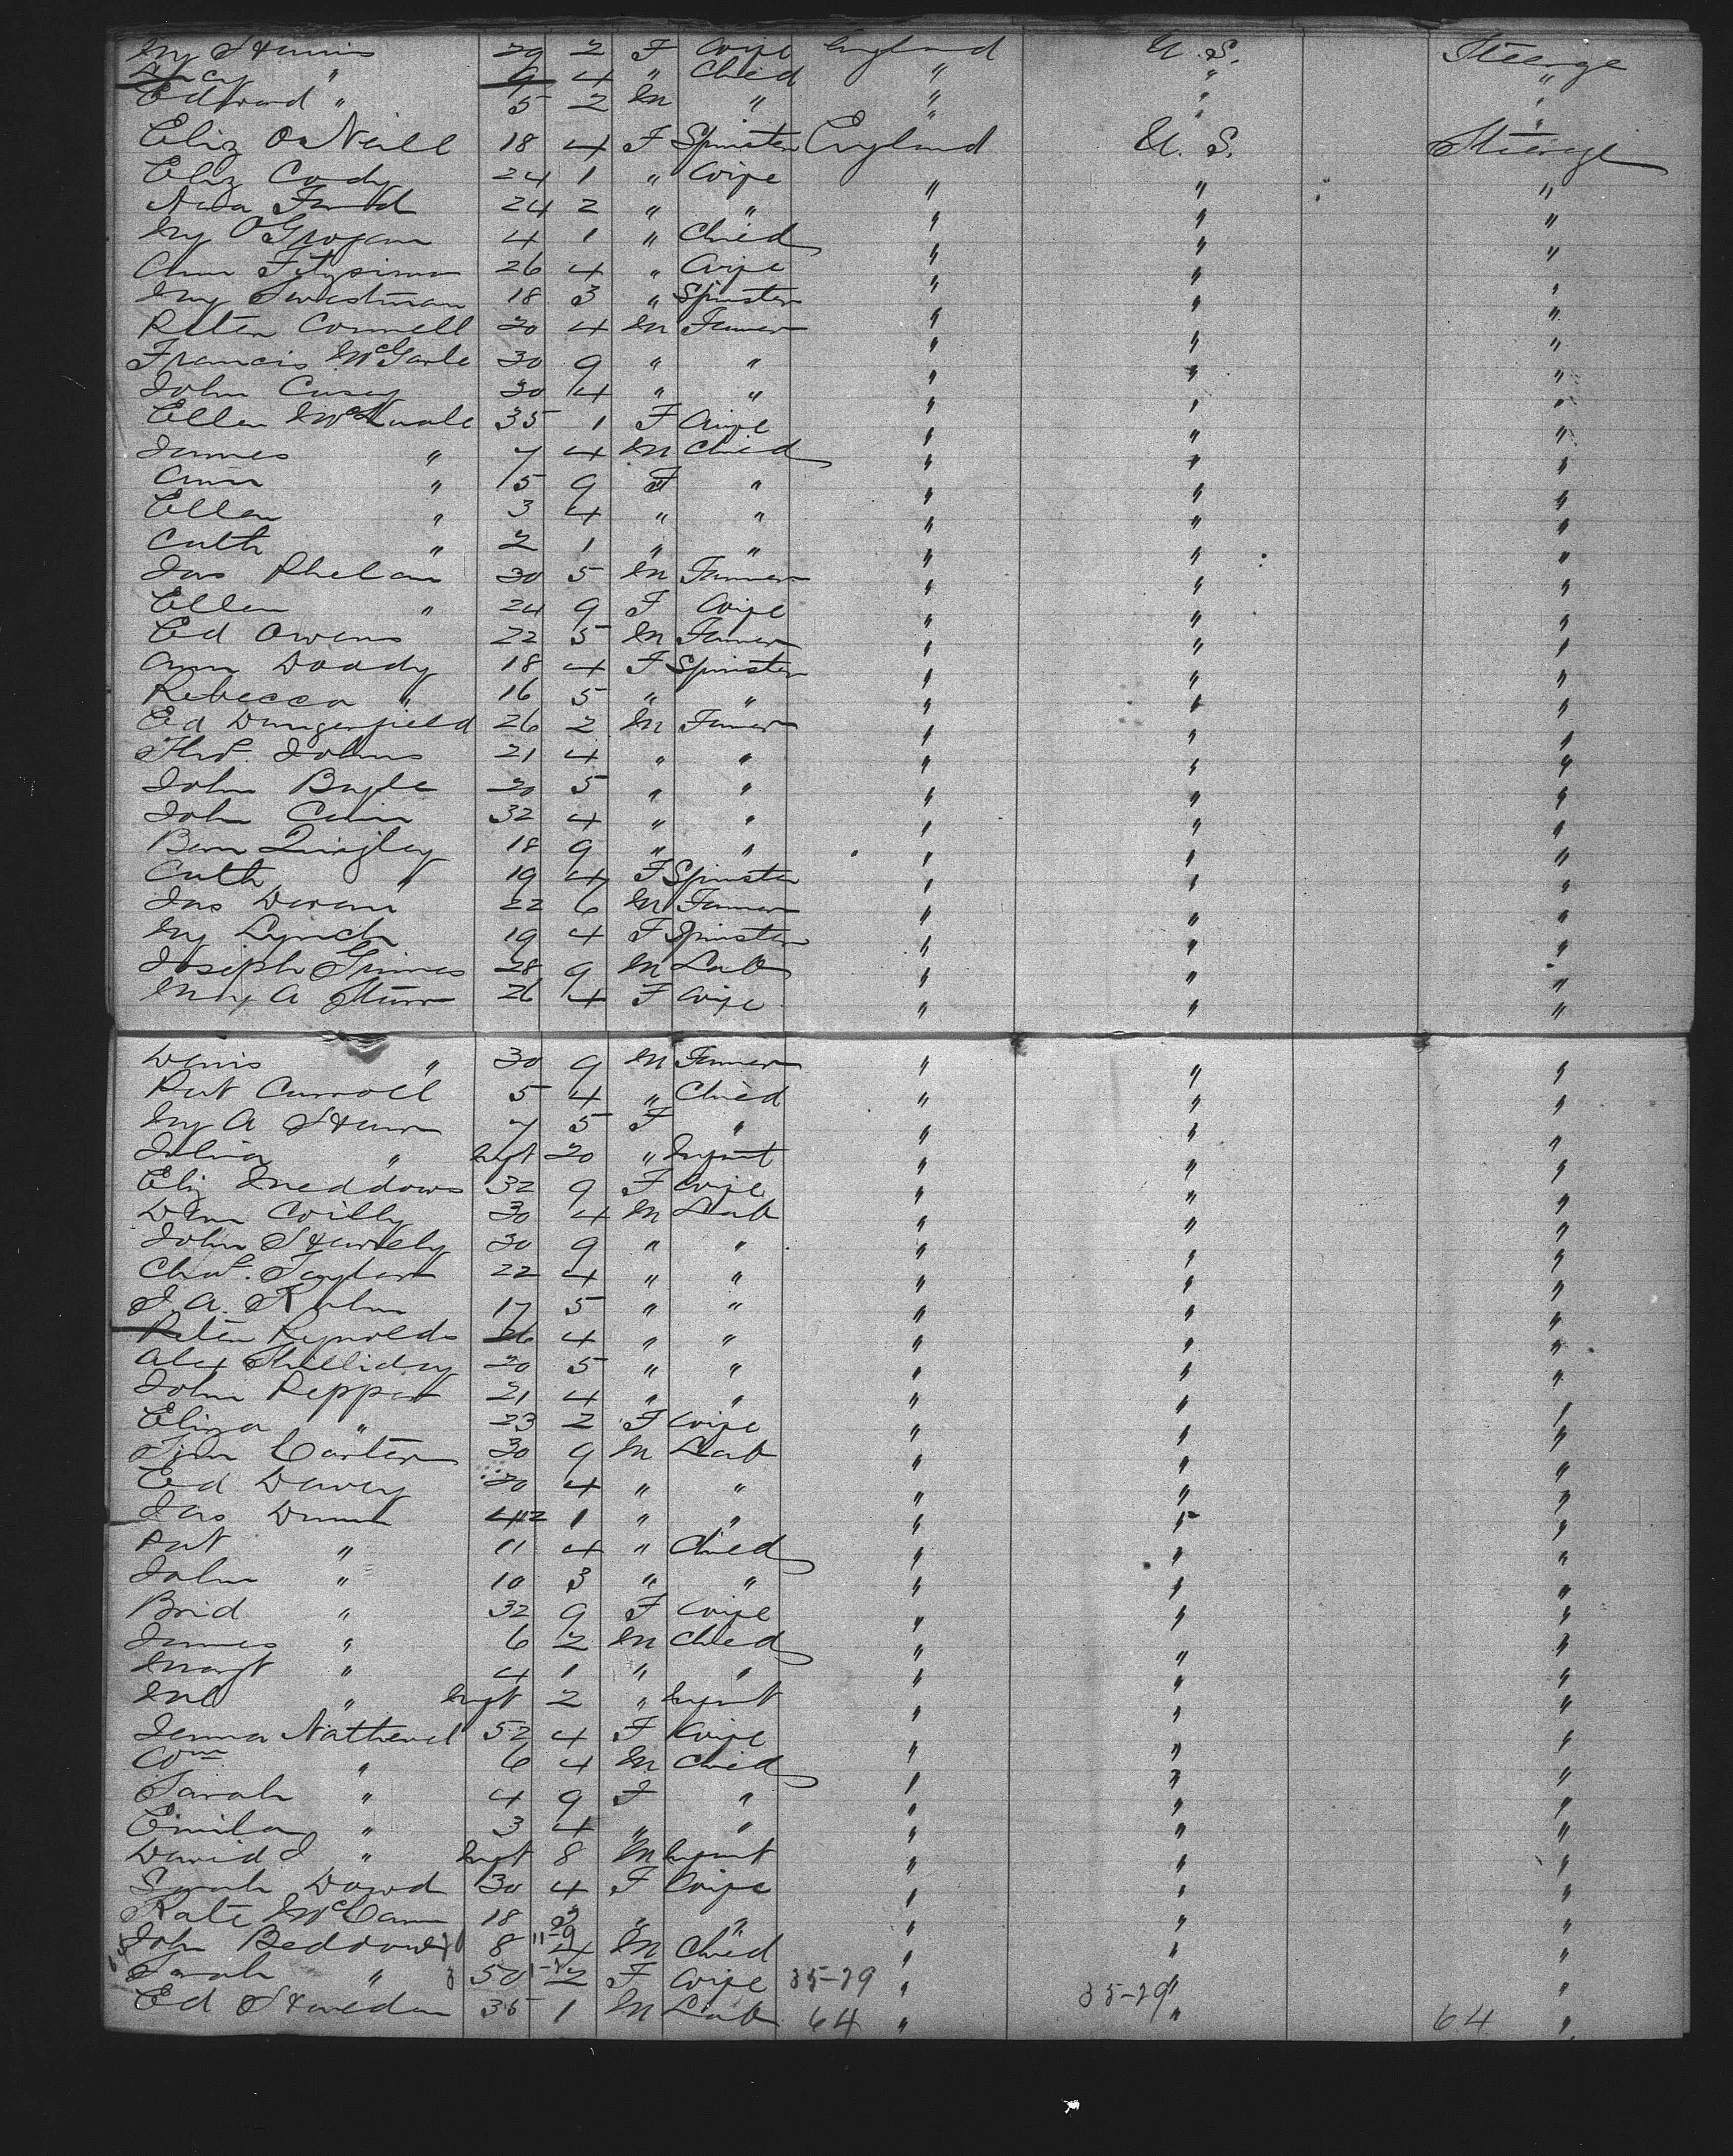 My 29 2 F Wife England U. S. Steerage
Lucy " 9 4 " Child " " "
Edward " 5 2 M " " " "
Eliz O'Neill 18 4 F Spinster England U. S. Steerage
Eliz Cody 24 1 " Wife " " "
24 2 " " " " "
My O'Grogan 4 1 " Child " " "
Ann Fitzsimon 26 4 " Wife " " "
My Sweetman 18 3 " Spinster " " "
Peter Connell 20 4 M Farmer " " "
Francis McGarle 30 9 " " " " "
John Casey 30 4 " " " " "
Ellen 35 1 F Wife " " "
James " 7 4 M Child " " "
Ann " 5 9 F " " " "
Ellen " 3 4 " " " " "
Cath " 2 1 " " " " "
Jas Phelan 30 5 M Farmer " " "
Ellen " 24 9 F Wife " " "
Ed Owens 22 5 M Farmer " " "
Ann Doody 18 4 F Spinster " " "
Rebecca " 16 5 " " " " "
Ed Dangerfield 26 2 M Farmer " " "
Thos. Johns 21 4 " " " " "
John Bogle 20 5 " " " " "
John Cain 32 4 " " " " "
Bern Quigley 18 9 " " " " "
Cath " 19 4 F Spinster " " "
Jas Doran 22 6 M Farmer " " "
My Lynch 19 4 F Spinster " " "
Joseph Grimes 28 9 M Lab " " "
Mary A 26 4 F Wife " " "
Denis " 30 9 M Farmer " " "
Pat Carroll 5 4 " Child " " "
My A 7 5 F " " " "
Julia " Inft 20 " Infant " " "
Eliz Meddows 32 9 F Wife " " "
Dan 30 4 M Lab " " "
John 30 9 " " " " "
Chas. Taylor 22 4 " " " " "
J. A. 17 5 " " " " "
Peter Reynolds 26 4 " " " " "
Alex 20 5 " " " " "
John Peppiat 21 4 " " " " "
Eliza " 23 2 F Wife " " "
Tim Carter 30 9 M Lab " " "
Ed Davey 20 4 " " " " "
Jas Dunn 42 1 " " " " "
Pat " 11 4 " Child " " "
John " 10 3 " " " " "
Brid " 32 9 F Wife " " "
James " 6 2 M Child " " "
Margt " 4 1 " " " " "
" Inft 2 " Infant " " "
52 4 F Wife " " "
Wm " 6 4 M Child " " "
Sarah " 4 9 F " " " "
Emila " 3 4 " " " " "
David J " Inft 8 M Infant " " "
Sarah Dowd 30 4 F Wife " " "
Kate McCann 18 " " " " "
John 8 11-9 4 M Child " " "
Sarah " 50 2 F Wife 35-29 " 35-29 " "
Ed 35 1 M Lab 64 " " 64 "